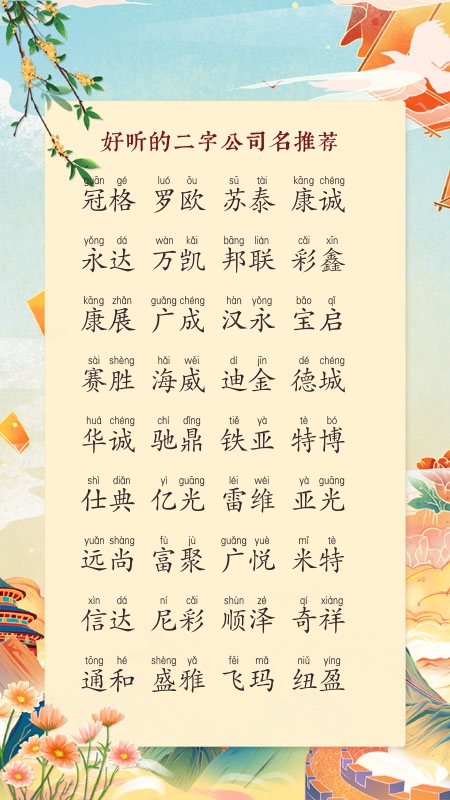 好听的二字公司名推荐
guān gé luó ōu sū tài kāng chéng
冠格 罗欧 苏泰 康诚
yǒng dá wàn kǎi bāng lián cǎi xīn
永达 万凯 邦联 彩鑫
kāng zhǎn guǎng chéng hàn yǒng bǎo qǐ
康展 广成 汉永 宝启
sài shèng hǎi wēi dí jīn dé chéng
赛胜 海威 迪金 德城
huá chéng chí dǐng tiě yà tè bó
华诚 驰鼎 铁亚 特博
shì diǎn yì guāng léi wéi yà guāng
仕典 亿光 雷维 亚光
yuǎn shàng fù jù guǎng yuè mǐ tè
远尚 富聚 广悦 米特
xìn dá ní cǎi shùn zé qí xiáng
信达 尼彩 顺泽 奇祥
tōng hé shèng yǎ fēi mǎ niǔ yíng
通和 盛雅 飞玛 纽盈